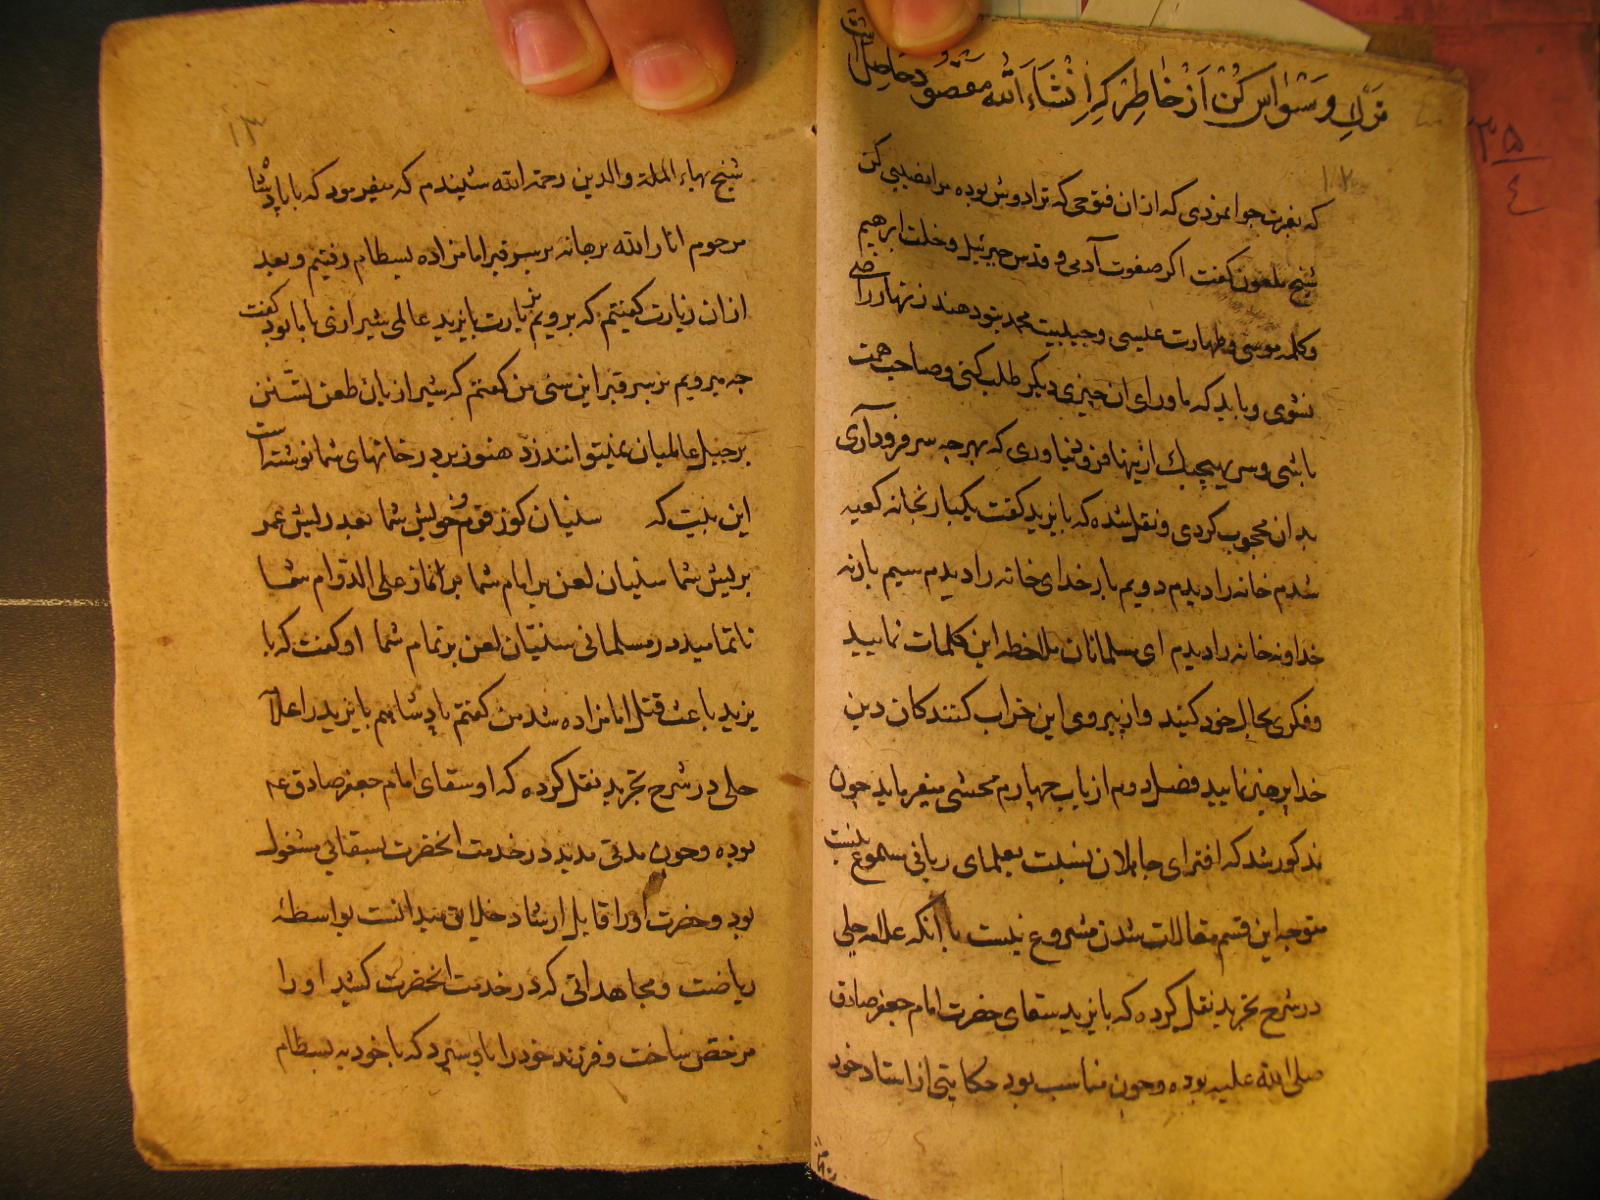 ترک وسواس کن از خاطر که انشاءالله مقصود حاصل است
۱۲
۳۵
۴
که بعزت جوانمردی که از ان فتوحی که ترا دوش بوده مرا نصیبی کن
شیخ ملعون کفت اکر صفوت آدمی و قدس جبرئیل و خلت ابرهیم
و کلمه موسی و طهارت عیسی و حبیبیت محمد بتو دهند زنهار راضی
نشوی و باید که ماورای ان چیزی دیکر طلب کنی و صاحب همت
باشی و سر بهیچیک ازینها فرو نیاوری که بهرچه سر فرود آری
بدان محجوب کردی و نقل شده که بایزید کفت یکبار بخانه کعبه
شدم خانه را دیدم دویم بار خدای خانه را دیدم سیم بار نه
خداونه خانه را دیدم ای مسلمانان ملاحظه این کلمات نمایید
و فکری بحال خود کنید و از پیروی این خراب کنندکان دین
خدا پرهیز نمایید فصل دوم از باب چهارم محشی میفرماید چون
مذکور شد که افترای جاهلان نسبت بعلمای ربانی مسموع نیست
متوجه این قسم مقالات شدن مشروع نیست با آنکه علامه حلی
در شرح تجرید نقل کرده که بایزید سقای حضرت امام جعفر صادق
صلی الله علیه بوده و چون مناسب بود حکایتی از استاد خود
۱۳
شیخ بهاء الملة والدین رحمه الله شنیدم که میفرمود که با پادشاه
مرحوم انار الله برهانه بر سر قبر امامزاده بسطام رفتیم و بعد
از ان زیارت کفتیم که برویم بزیارت بایزید عالمی شیرازی با ما بود کفت
چه میرویم بر سر قبر این سنی من کفتم که شیرازیان طعن تسنن
بر جبل عاملیان نمیتوانند زد هنوز بر در خانهای شما نوشته است
این بیت که سنیان کوز قوم و خویش شما بعد ریش عمر
بریش شما سنیان لعن بر امام شما بر نماز علی الدوام شما
ناتمامید در مسلمانی سنیان لعن بر تمام شما او کفت که با
یزید باعث قتل امامزاده شد من کفتم پادشاهم بایزید را علامه
حلی در شرح تجرید نقل کرده که او سقای امام جعفر صادق عم
بوده و چون مدتی مدید در خدمت انحضرت بسقائی مشغول
بود و حضرت او را قابل ارشاد خلایق میدانست بواسطهٔ
ریاضت و مجاهداتی که در خدمت انحضرت کشید او را
مرخص ساخت و فرزند خود را باو سپرد که با خود به بسطام